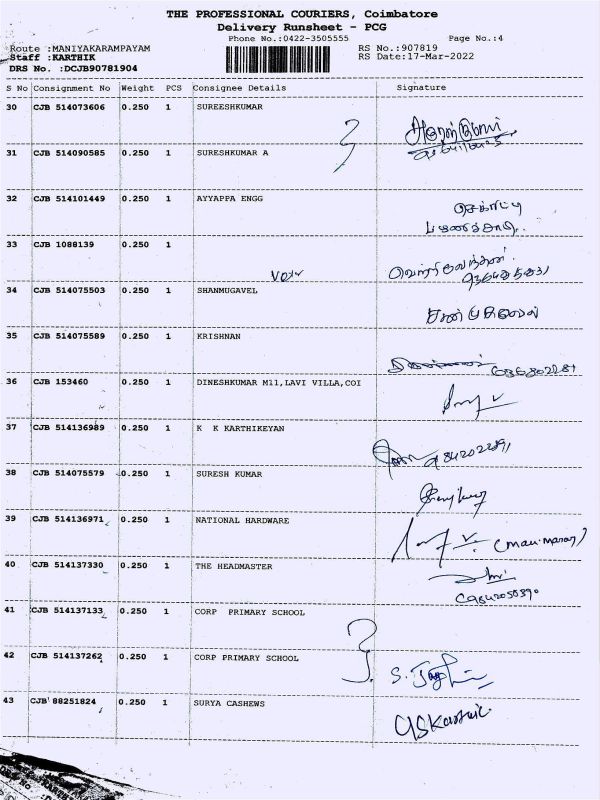 THE PROFESSIONAL COURIERS, Coimbatore
Delivery Runsheet - PCG
Phone No.:0422-3505555 Page No.:4
Route :MANIYAKARAMPAYAM RS No.:907819
Staff :KARTHIK RS Date:17-Mar-2022
DRS No. :DCJB90781904
S No Consignment No Weight PCS Consignee Details Signature
30 CJB 514073606 0.250 1 SUREESHKUMAR
31 CJB 514090585 0.250 1 SURESHKUMAR A
32 CJB 514101449 0.250 1 AYYAPPA ENGG
33 CJB 1088139 0.250 1
34 CJB 514075503 0.250 1 SHANMUGAVEL
35 CJB 514075589 0.250 1 KRISHNAN
36 CJB 153460 0.250 1 DINESHKUMAR M11,LAVI VILLA,COI
37 CJB 514136989 0.250 1 K K KARTHIKEYAN
38 CJB 514075579 0.250 1 SURESH KUMAR
39 CJB 514136971 0.250 1 NATIONAL HARDWARE
40 CJB 514137330 0.250 1 THE HEADMASTER
41 CJB 514137133 0.250 1 CORP PRIMARY SCHOOL
42 CJB 514137262 0.250 1 CORP PRIMARY SCHOOL
43 CJB 88251824 0.250 1 SURYA CASHEWS